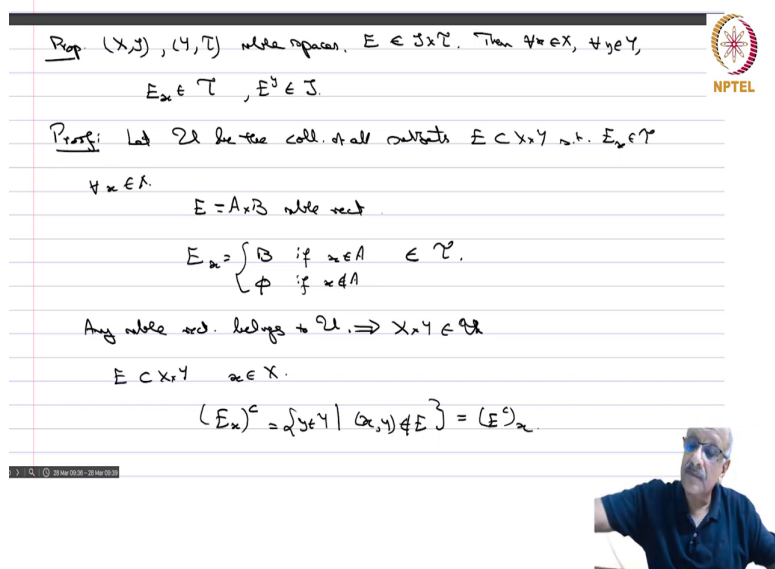 Prop. (X,S), (Y,τ) mble spaces. E ∈ S×τ. Then ∀x∈X, ∀y∈Y,
E_x ∈ τ, E^y ∈ S.
NPTEL
Proof: Let U be the coll. of all subsets E ⊂ X×Y s.t. E_x ∈ τ
∀ x ∈ X.
E = A×B mble rect.
E_x = { B if x∈A ∈ τ.
{ φ if x∉A
Any mble rect. belongs to U. ⇒ X×Y ∈ U
E ⊂ X×Y x ∈ X.
(E_x)^c = {y∈Y | (x,y)∉E} = (E^c)_x.
28 Mar 09:36 – 28 Mar 09:39